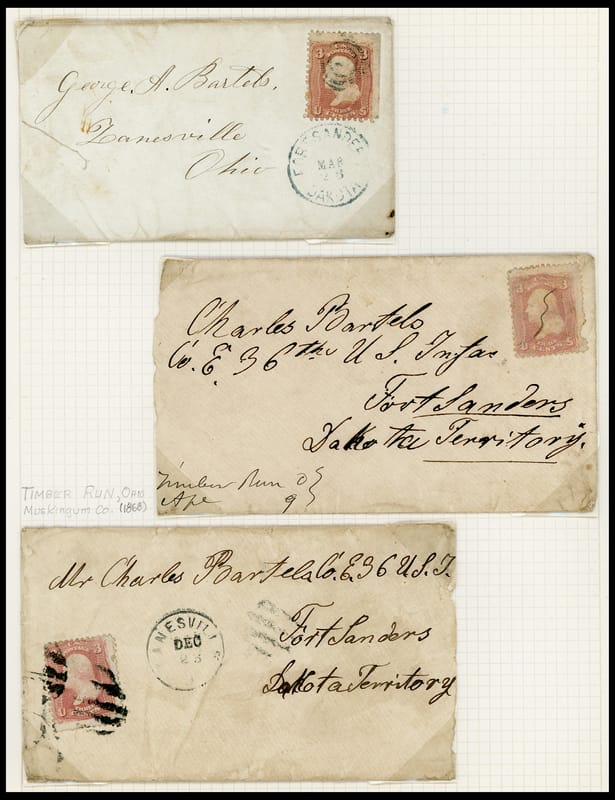 George. A. Bartels.
Zanesville
Ohio
FORT SANDE
MAR
23
DAKOTA
3 3
U CENTS S
Charles Bartels
Co. E. 36th U S. Infa
Fort Sanders
Dakota Territory.
Timber Run O
Apr 9
3 3
U CENTS S
TIMBER RUN, OHIO
MUSKINGUM CO. (1868)
Mr Charles Bartels Co. E. 36 U.S.I.
Fort Sanders
Dakota Territory
ZANESVILL
DEC
23
3
U